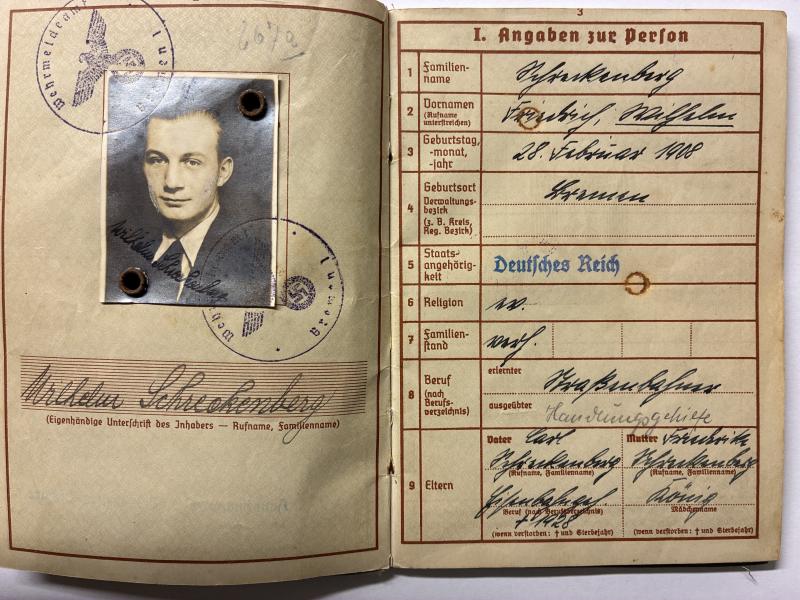 Wehrmeldeamt
267a
Wilhelm Schreckenberg
Wilhelm Schreckenberg
(Eigenhändige Unterschrift des Inhabers — Rufname, Familienname)
3
I. Angaben zur Person
1 Familien-
name
Schreckenberg
2 Vornamen
(Rufname
unterstreichen)
Friedrich, Wilhelm
3 Geburtstag,
-monat,
-jahr
28. Februar 1908
4 Geburtsort
Verwaltungs-
bezirk
(z. B. Kreis,
Reg. Bezirk)
Bremen
5 Staats-
angehörig-
keit
Deutsches Reich
6 Religion
ev.
7 Familien-
stand
verh.
8 Beruf
(nach
Berufs-
verzeichnis)
erlernter
Straßenbahner
ausgeübter
Handlungsgehilfe
9 Eltern
Vater Carl
Schreckenberg
(Rufname, Familienname)
† 1928
Beruf (nach Berufsverzeichnis)
(wenn verstorben: † und Sterbejahr)
Mutter Friederike
Schreckenberg
(Rufname, Familienname)
König
Mädchenname
(wenn verstorben: † und Sterbejahr)